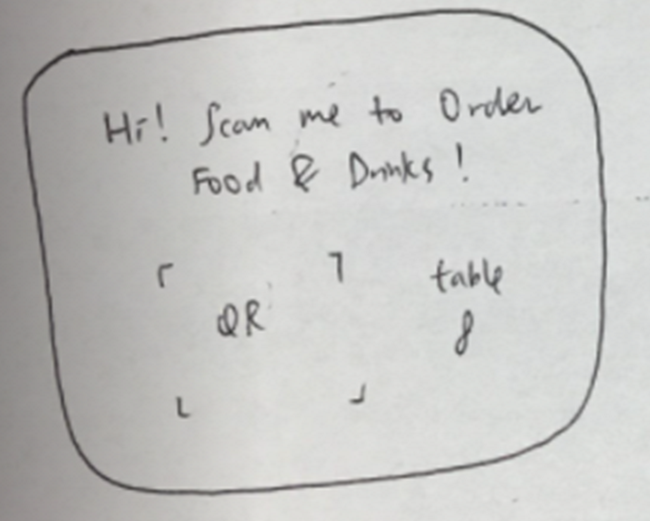 Hi! Scan me to Order
Food & Drinks!
QR
table
8